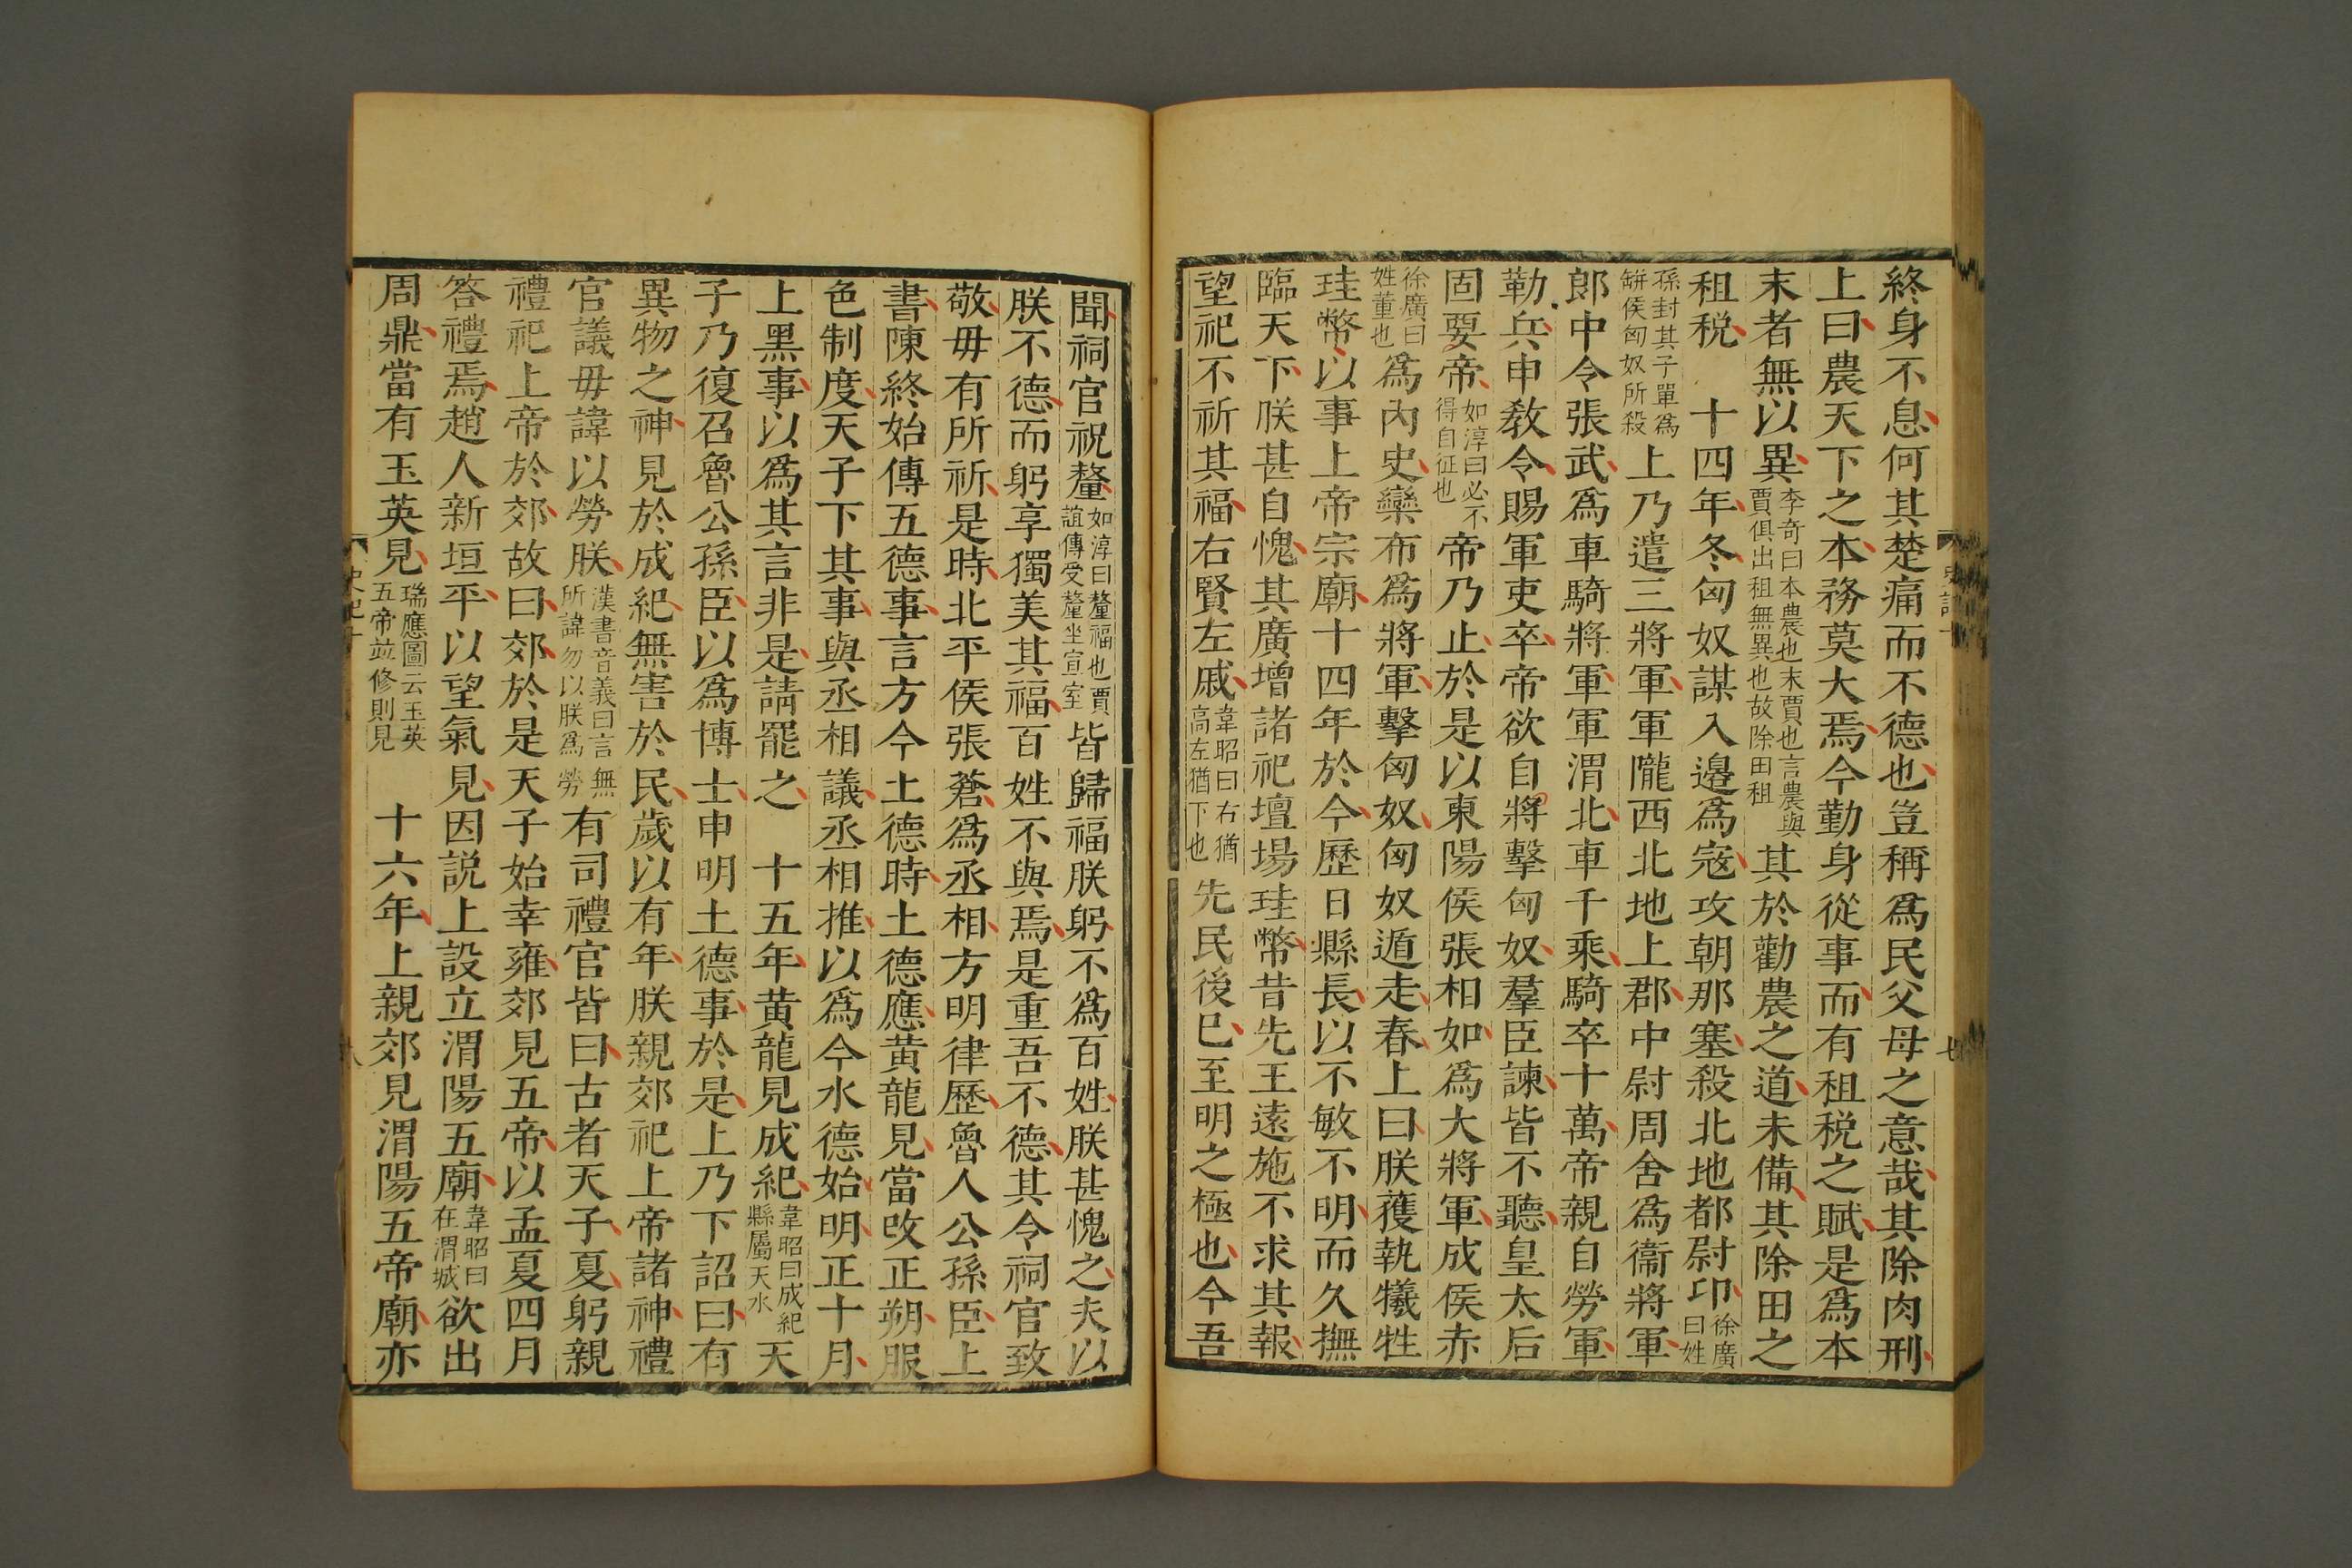 終身不息何其楚痛而不德也豈稱爲民父母之意哉其除肉刑
上曰農天下之本務莫大焉今勤身從事而有租税之賦是爲本
末者無以異李奇曰本農也末賈也言農與賈俱出租無異也故除田租其於勸農之道未備其除田之
租税　十四年冬匈奴謀入邊爲寇攻朝那塞殺北地都尉卬徐廣曰姓
孫封其子單爲缾侯匈奴所殺上乃遣三將軍軍隴西北地上郡中尉周舍爲衞將軍
郎中令張武爲車騎將軍軍渭北車千乘騎卒十萬帝親自勞軍
勒兵申敎令賜軍吏卒帝欲自將擊匈奴羣臣諫皆不聽皇太后
固要帝如淳曰必不得自征也帝乃止於是以東陽侯張相如爲大將軍成侯赤
徐廣曰姓董也爲內史欒布爲將軍擊匈奴匈奴遁走春上曰朕獲執犧牲
珪幣以事上帝宗廟十四年於今歷日縣長以不敏不明而久撫
臨天下朕甚自愧其廣增諸祀壇場珪幣昔先王遠施不求其報
望祀不祈其福右賢左戚韋昭曰右猶高左猶下也先民後已至明之極也今吾
史記十
七
聞祠官祝釐如淳曰釐福也賈誼傳受釐坐宣室皆歸福朕躬不爲百姓朕甚愧之夫以
朕不德而躬享獨美其福百姓不與焉是重吾不德其令祠官致
敬毋有所祈是時北平侯張蒼爲丞相方明律歷魯人公孫臣上
書陳終始傳五德事言方今土德時土德應黄龍見當改正朔服
色制度天子下其事與丞相議丞相推以爲今水德始明正十月
上黑事以爲其言非是請罷之　十五年黄龍見成紀韋昭曰成紀縣屬天水天
子乃復召魯公孫臣以爲博士申明土德事於是上乃下詔曰有
異物之神見於成紀無害於民歲以有年朕親郊祀上帝諸神禮
官議毋諱以勞朕漢書音義曰言無所諱勿以朕爲勞有司禮官皆曰古者天子夏躬親
禮祀上帝於郊故曰郊於是天子始幸雍郊見五帝以孟夏四月
答禮焉趙人新垣平以望氣見因説上設立渭陽五廟韋昭曰在渭城欲出
周鼎當有玉英見瑞應圖云玉英五帝並修則見　十六年上親郊見渭陽五帝廟亦
史記十
八